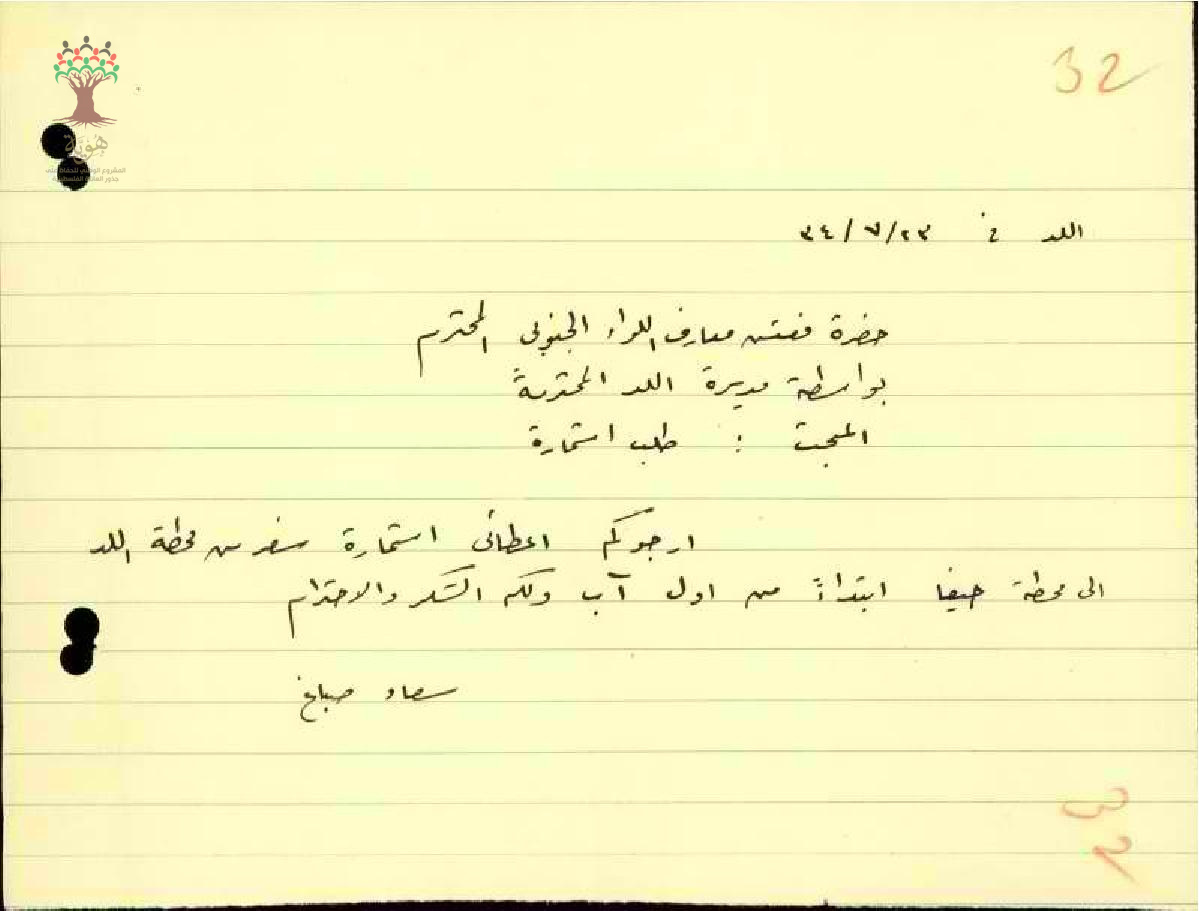 32
هوية
المشروع الوطني للحفاظ على
جذور العائلة الفلسطينية
اللد في ٢٣/٧/٣٤
حضرة مفتش معارف اللواء الجنوبي المحترم
بواسطة مديرة اللد المحترمة
المبحث : طلب استمارة
ارجوكم اعطائي استمارة سفر من محطة اللد
الى محطة حيفا ابتداءً من اول آب ولكم الشكر والاحترام
سعاد صباغ